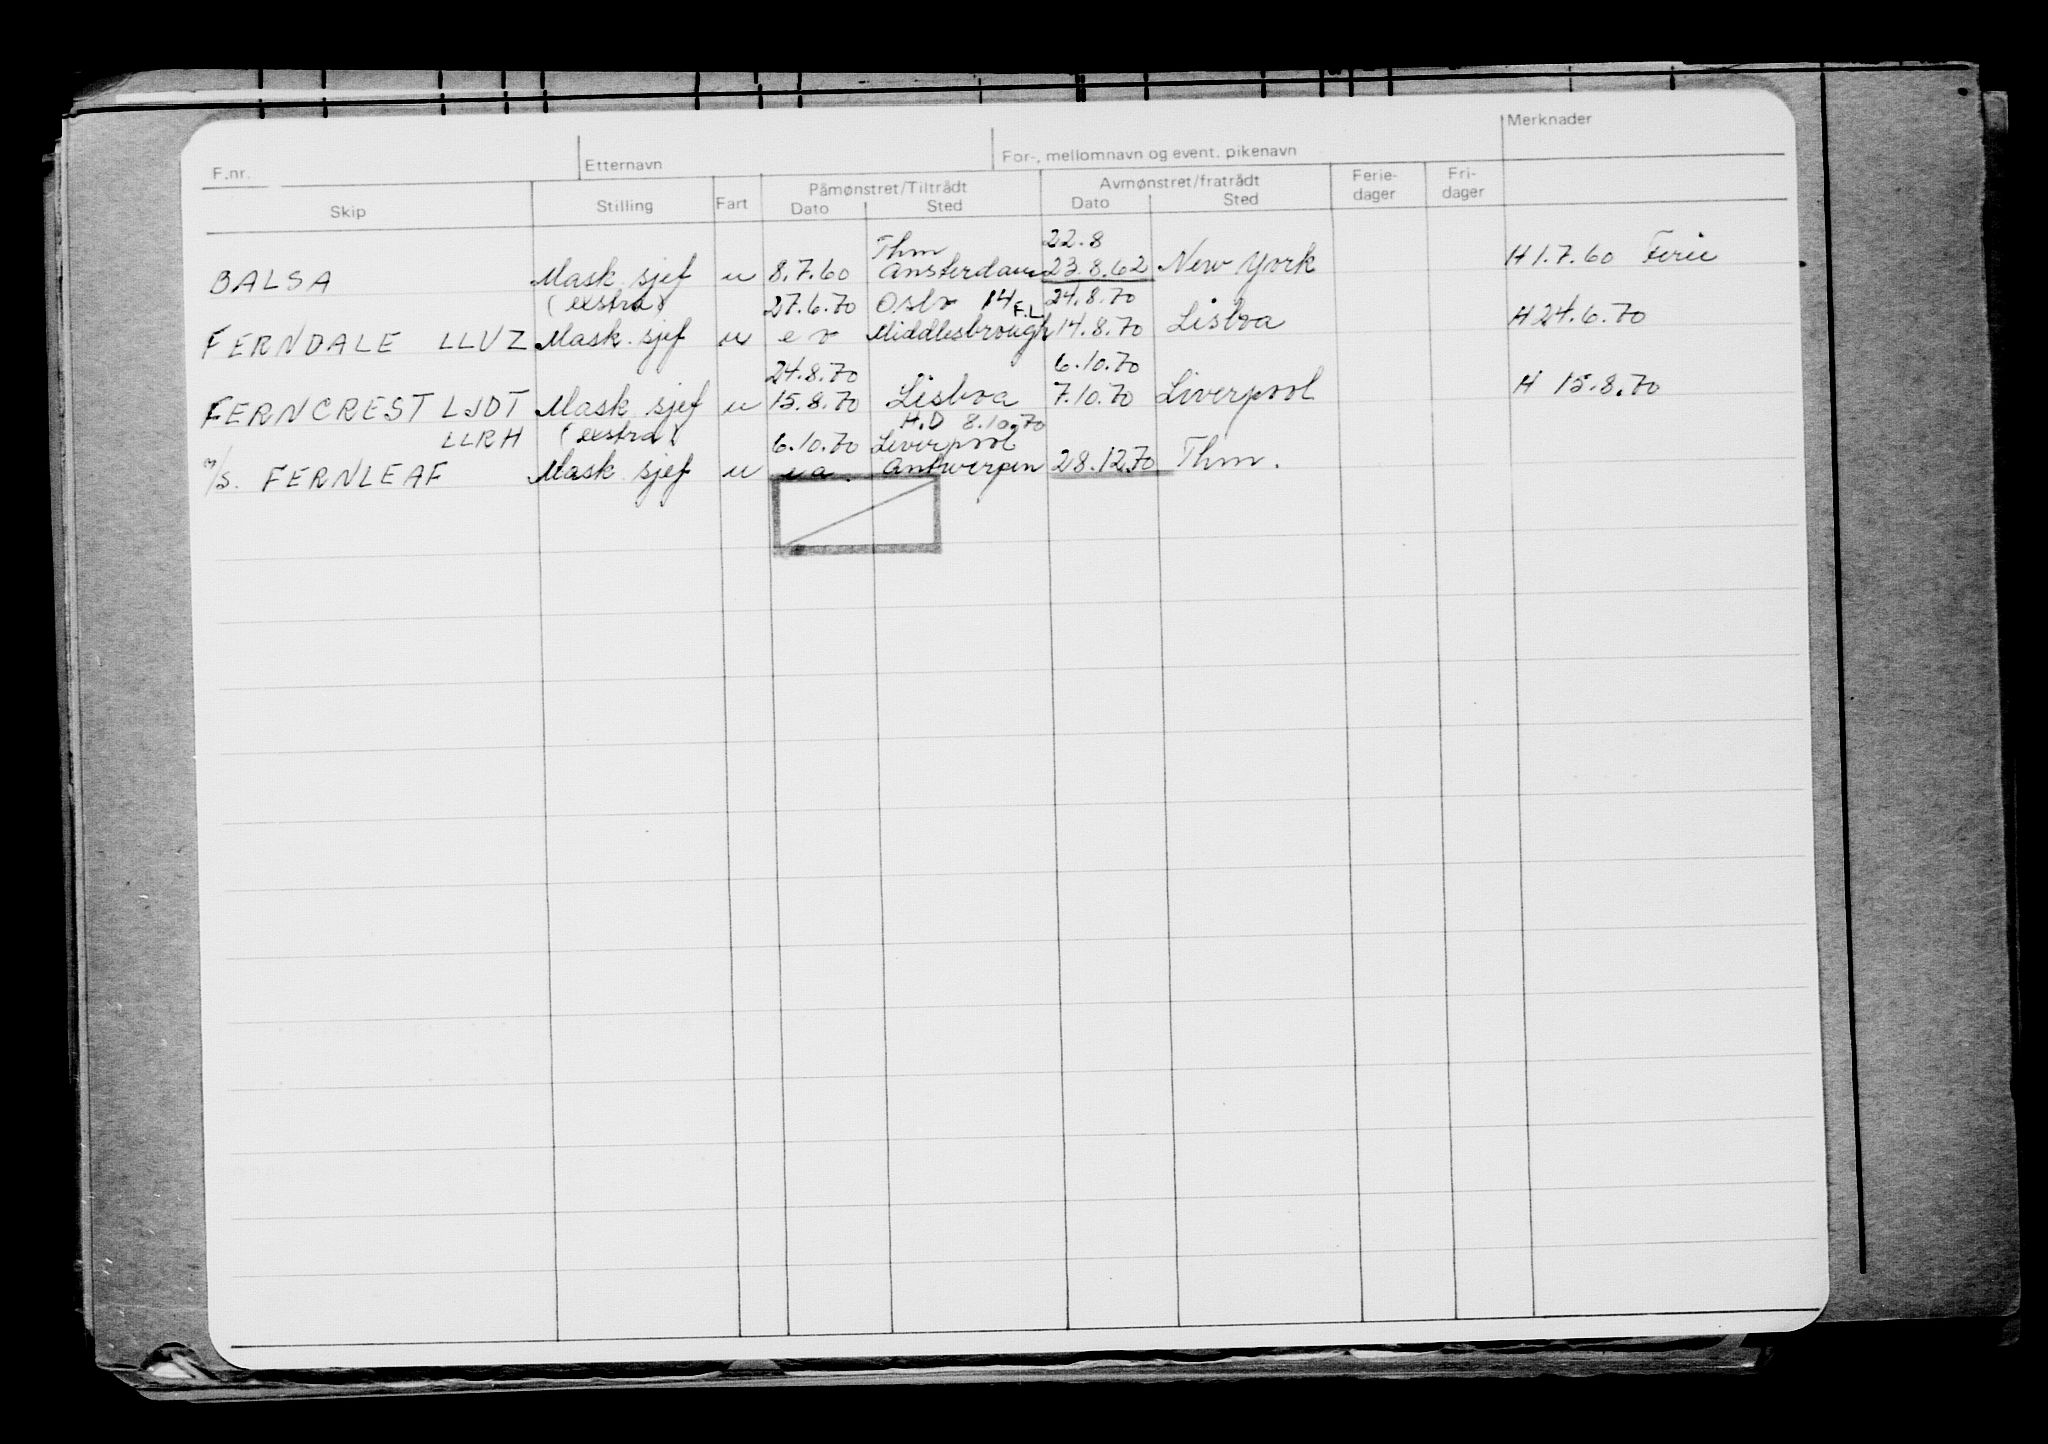 F.nr. Etternavn For-, mellomnavn og event. pikenavn Merknader
Skip Stilling Fart Påmønstret/Tiltrådt Avmønstret/fratrådt Ferie-dager Fri-dager
Dato Sted Dato Sted
Thm 22.8
BALSA Mask. sjef u 8.7.60 Amsterdam 23.8.62 New York H 1.7.60 Ferie
(exstra) 27.6.70 Oslo 14 F.L. 24.8.70
FERNDALE LLVZ Mask. sjef u e r Middlesbrough 14.8.70 Lisboa H 24.6.70
24.8.70 6.10.70
FERNCREST LJDT Mask sjef u 15.8.70 Lisboa 7.10.70 Liverpool H 15.8.70
H.D 8.10.70
LLRH (exstra) 6.10.70 Liverpool
M/S. FERNLEAF Mask sjef u u a. Antwerpen 28.12.70 Thm.